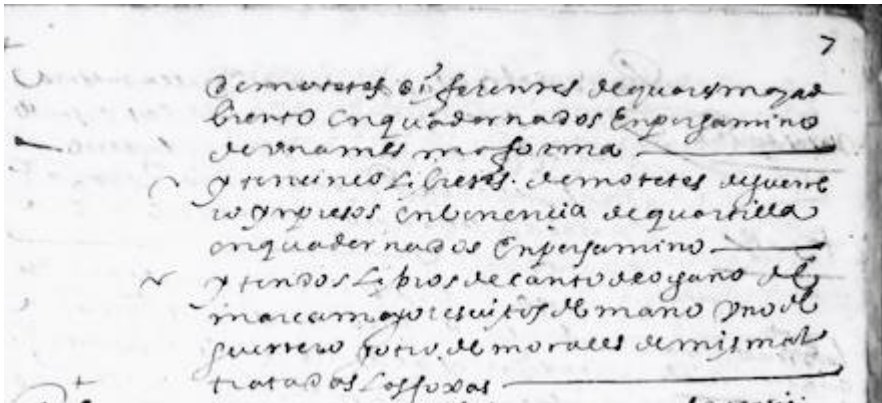 7
de motetes diferentes de quaresma y ad
biento enquadernados en pergamino
de una mesma forma
yten cinco libretes de motetes de guerre
ro ynpresos en benencia de quartilla
enquadernados en pergamino
yten dos libros de canto de organo de
marca mayor escritos de mano uno de
guerrero y otro de morales de mismal
tratados las foxas